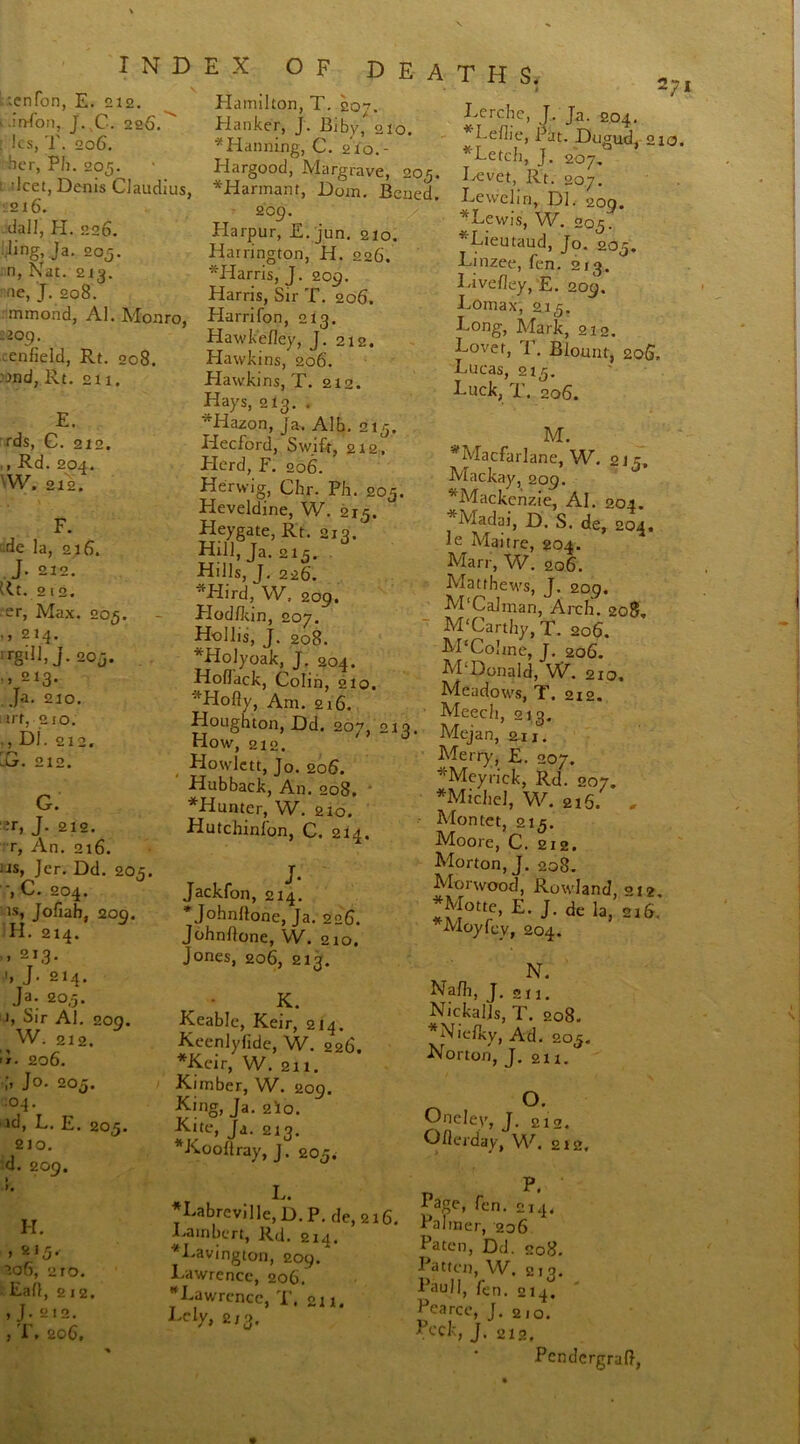 INDEX OF DEATHS. 271
:enſon, E. 212.
.inſon, J. C. 226.
les, T. 206.
her, Ph. 205.
lcet, Denis Claudius,
216.
dall, H. 226.
ling, Ja. 205.
n, Nat. 213.
ne, J. 208.
mmond, Al. Monro,
209.
enfield, Rt. 208.
ond, Rt. 211.
E.
rds, C. 212.
, Rd. 204.
W. 212.
F.
de la, 216.
J. 212.
Rt. 212.
er, Max. 205.
, 214.
rgill, J. 205.
, 213.
Ja. 210.
art, 210.
, Dl. 212.
G. 212.
G.
er, J. 212.
r, An. 216.
us, Jer. Dd. 205.
, C. 204.
is, Joſiah, 209.
H. 214.
, 213.
, J. 214.
Ja. 205.
, Sir Al. 209.
W. 212.
206.
, Jo. 205.
204.
nd, L. E. 205.
210.
d. 209.
H.
, 215.
206, 210.
Eaſt, 212.
, J. 212.
, T. 206.
Hamilton, T. 207.
Hanker, J. Biby, 210.
*Hanning, C. 210.
Hargood, Margrave, 205.
*Harmant, Dom. Bened.
209.
Harpur, E. jun. 210.
Harrington, H. 226.
*Harris, J. 209.
Harris, Sir T. 206.
Harriſon, 213.
Hawkeſley, J. 212.
Hawkins, 206.
Hawkins, T. 212.
Hays, 213.
*Hazon, Ja. Alb. 215.
Hecford, Swift, 212.
Herd, F. 206.
Herwig, Chr. Ph. 205.
Heveldine, W. 215.
Heygate, Rt. 213.
Hill, Ja. 215.
Hills, J. 226.
*Hird, W. 209.
Hodſkin, 207.
Hollis, J. 208.
*Holyoak, J. 204.
Hoſſack, Colin, 210.
*Hoſty, Am. 216.
Houghton, Dd. 207, 213.
How, 212.
Howlett, Jo. 206.
Hubback, An. 208.
*Hunter, W. 210.
Hutchinſon, C. 214.
J.
Jackſon, 214.
*Johnſtone, Ja. 226.
Johnſtone, W. 210.
Jones, 206, 213.
K.
Keable, Keir, 214.
Keenlyſide, W. 226.
*Keir, W. 211.
Kimber, W. 209.
King, Ja. 210.
Kite, Ja. 213.
*Kooſtray, J. 205.
L.
*Labreville, D. P. de, 216.
Lambert, Rd. 214.
*Lavington, 209.
Lawrence, 206.
*Lawrence, T. 211.
Lely, 213.
Lerche, J. Ja. 204.
*Leſlie, Pat. Dugud, 210.
*Letch, J. 207.
Levet, Rt. 207.
Lewelin, Dl. 209.
*Lewis, W. 205.
*Lieutaud, Jo. 205.
Linzee, ſen. 213.
Liveſley, E. 209.
Lomax, 215.
Long, Mark, 212.
Lovet, T. Blount, 206.
Lucas, 215.
Luck, T. 206.
M.
*Macfarlane, W. 215.
Mackay, 209.
*Mackenzie, Al. 204.
*Madai, D. S. de, 204.
le Maitre, 204.
Marr, W. 206.
Matthews, J. 209.
M'Calman, Arch. 208.
M'Carthy, T. 206.
M'Colme, J. 206.
M'Donald, W. 210.
Meadows, T. 212.
Meech, 213.
Mejan, 211.
Merry, E. 207.
*Meyrick, Rd. 207.
*Michel, W. 216.
Montet, 215.
Moore, C. 212.
Morton, J. 208.
Morwood, Rowland, 212.
*Motte, E. J. de la, 216.
*Moyſey, 204.
N.
Naſh, J. 211.
Nickalls, T. 208.
*Nieſky, Ad. 205.
Norton, J. 211.
O.
Oneley, J. 212.
Oſterday, W. 212.
P.
Page, ſen. 214.
Palmer, 206
Paten, Dd. 208.
Patten, W. 213.
Paull, ſen. 214.
Pearce, J. 210.
Peck, J. 212.
Pendergraſt,